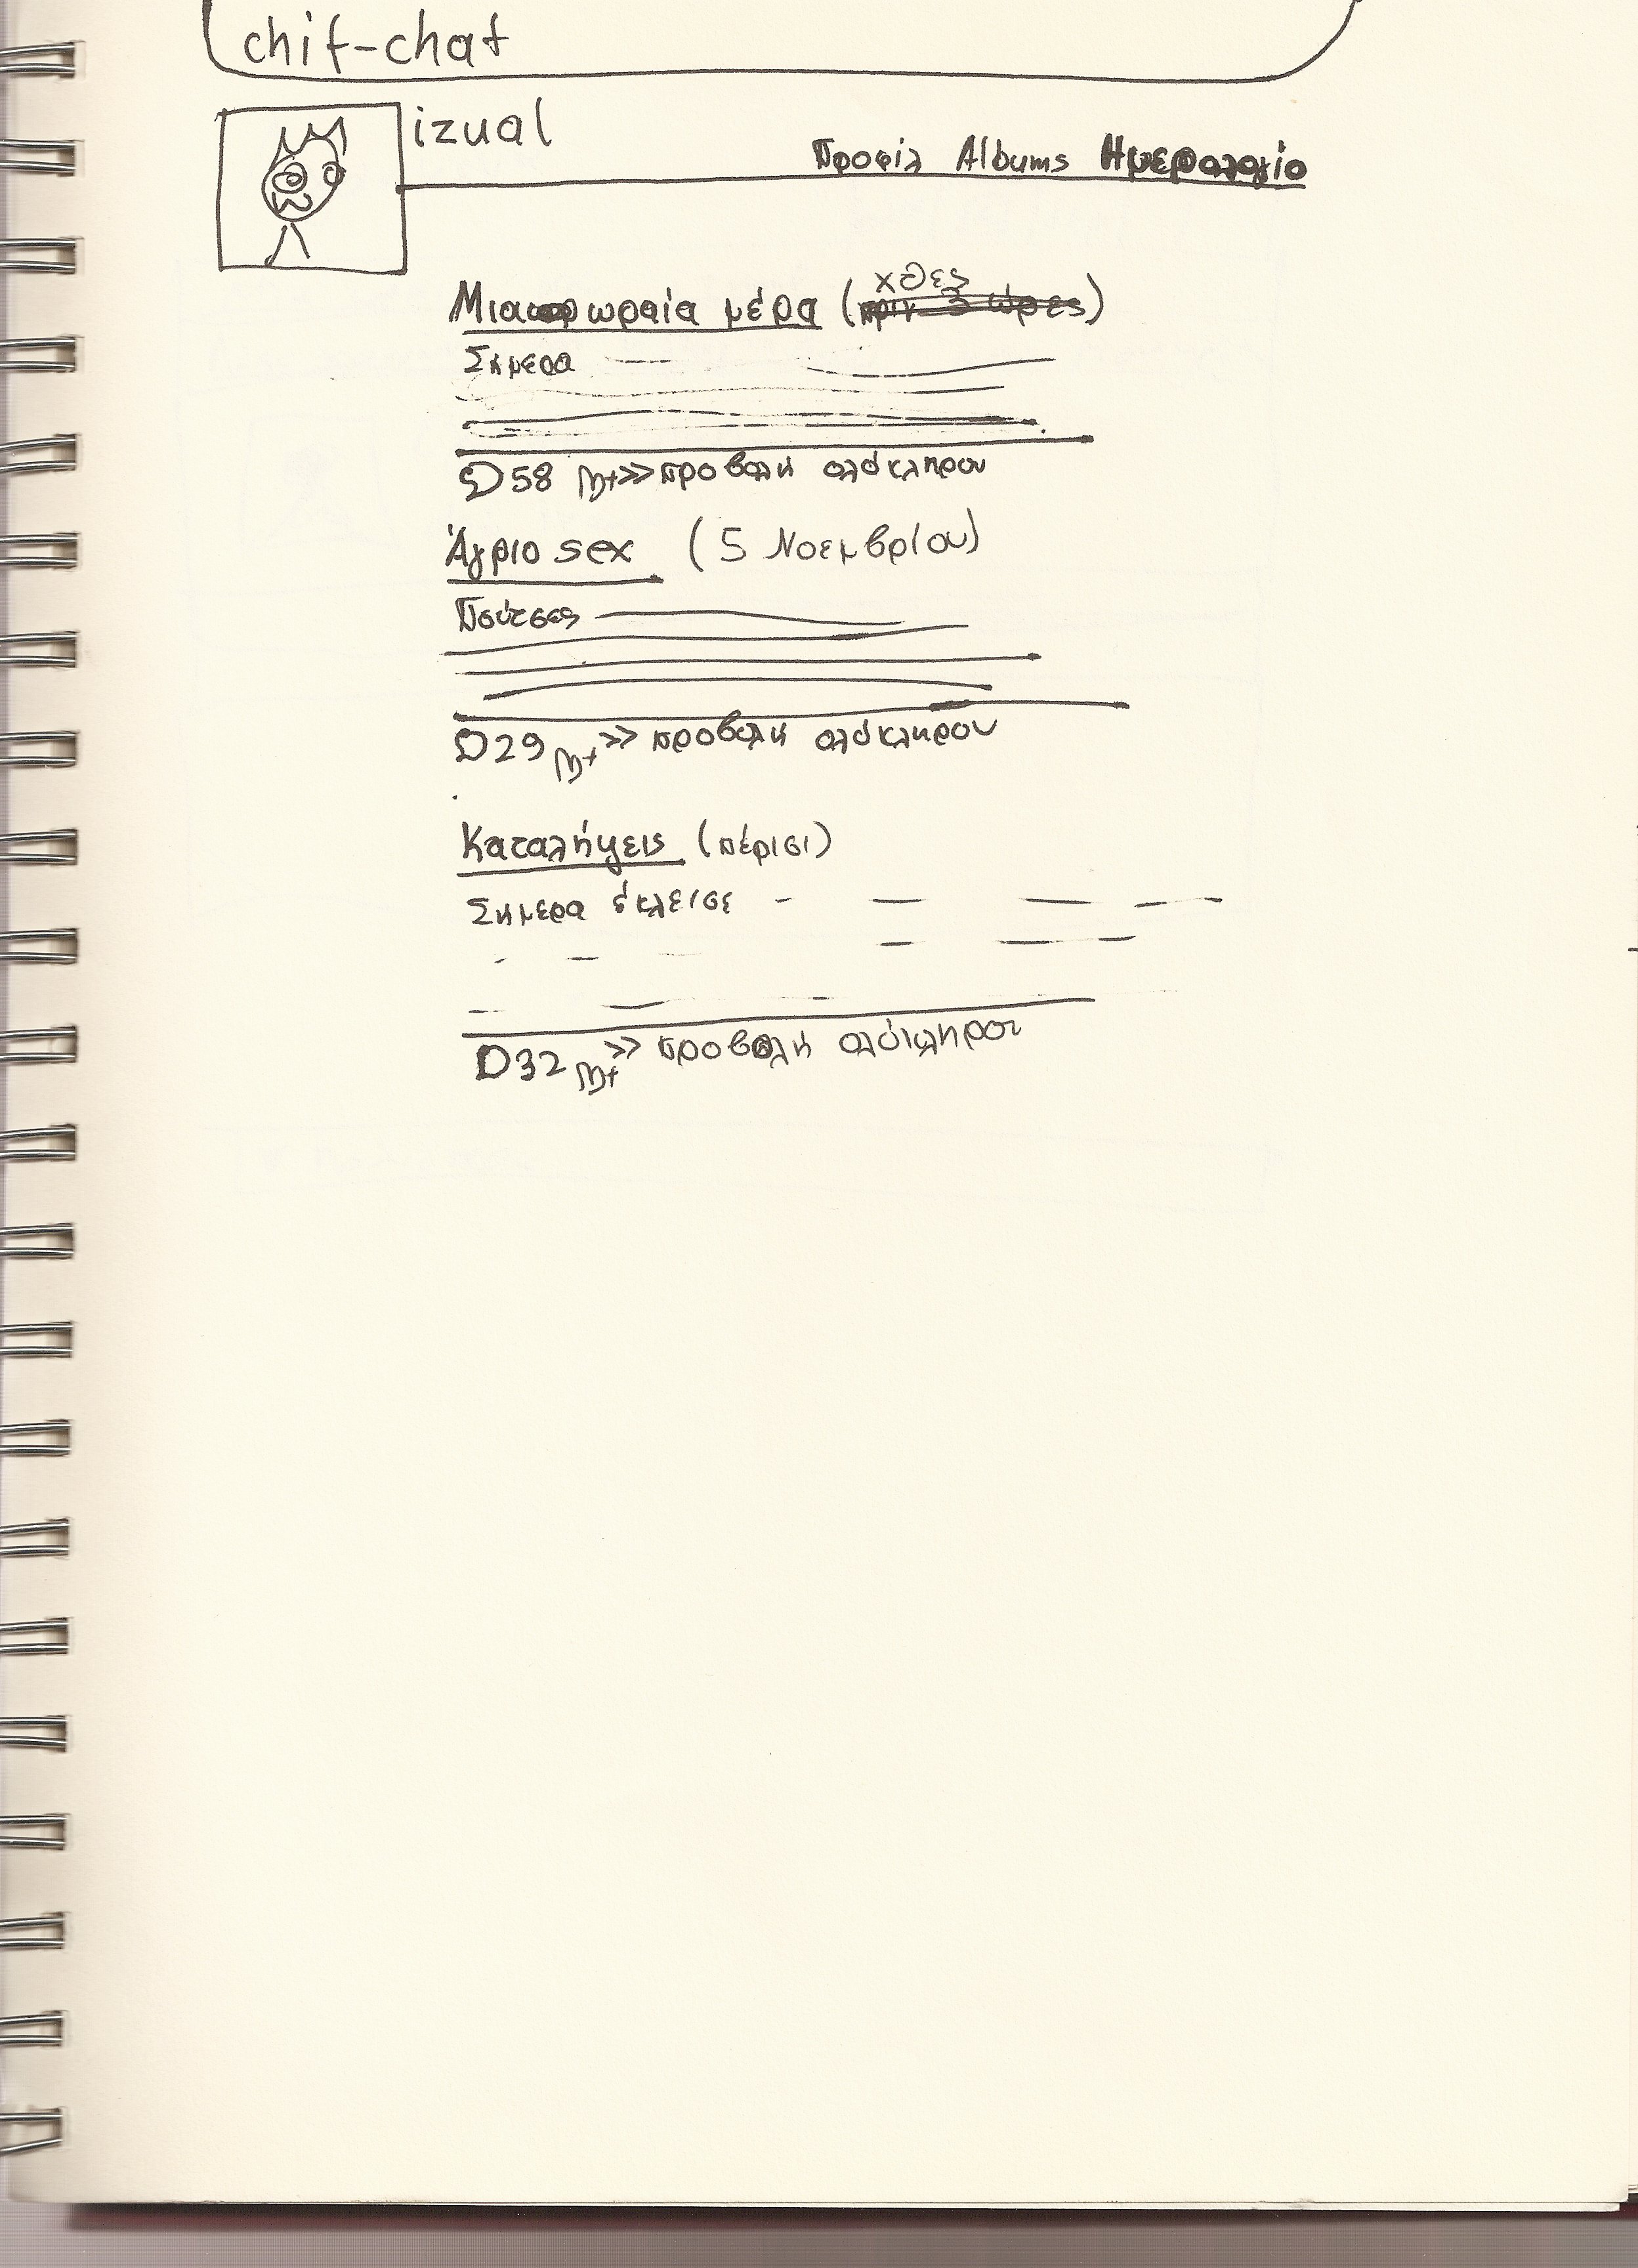 chit-chat
izual
Προφίλ Albums Ημερολόγιο
Μια ωραία μέρα (χθες)
Σήμερα
58 >> προβολή ολόκληρου
Άγριο sex (5 Νοεμβρίου)
Πούτσες
29 >> προβολή ολόκληρου
Καταλήψεις (πέρισι)
Σήμερα έκλεισε
32 >> προβολή ολόκληρου